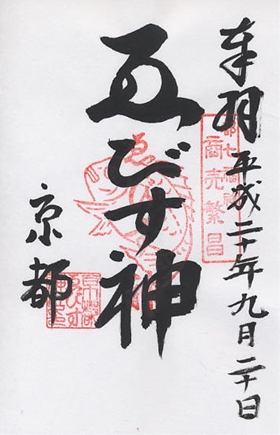 奉拝 平成二十年九月二十日
都七福神
商売繁昌
ゑびす神
ゑ
京都